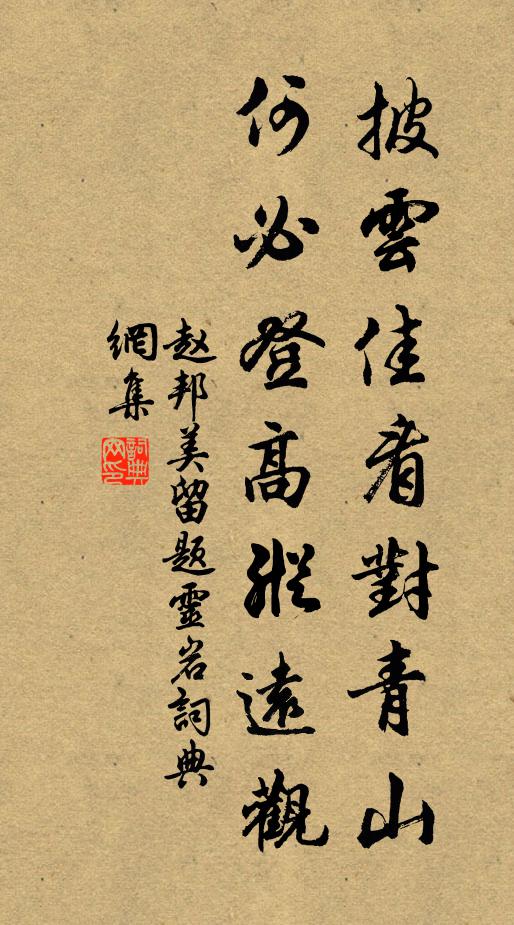 披雲佳看對青山
何必登高縱遠觀
赵邦美留題靈岩詞典
網集
詞典
网印